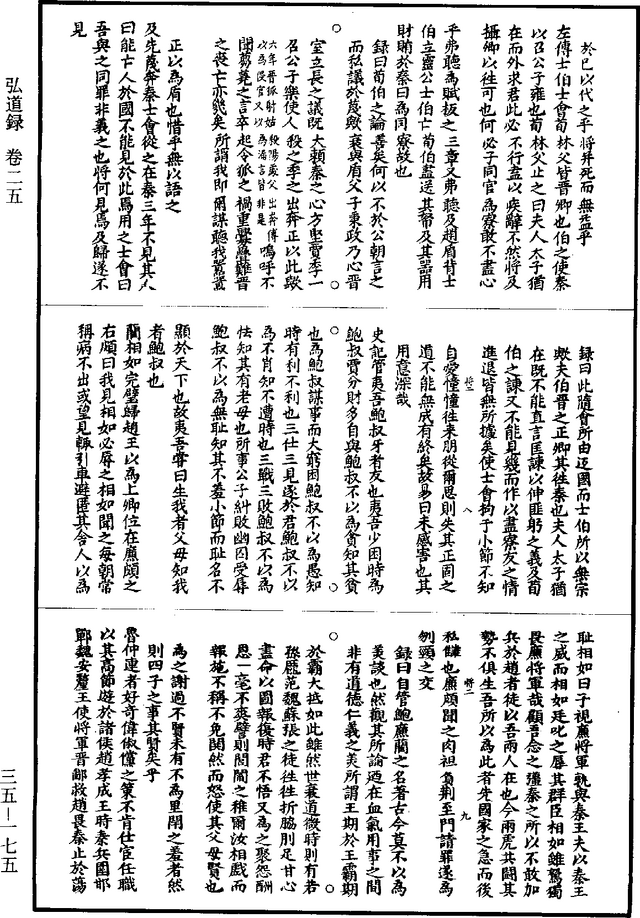 弘道錄　卷二五
三五—一七五
於已以代之乎將并死而無益乎
左傳士伯士會荀林父皆晉卿也伯之使秦
以召公子雍也荀林父止之曰夫人太子猶
在而外求君此必不行盍以疾辭不然將及
攝卿以往可也何必子同官為寮敢不盡心
乎弗聽為賦板之三章又弗聽及趙盾背士
伯立靈公士伯亡荀伯盡送其帑及其器用
財賄於秦曰為同寮故也
錄曰荀伯之論善矣何以不於公朝言之
而私議於蔑歟蓋與盾父子秉政乃心晉
室立長之議既大賴秦之心方堅賈季一
召公子樂使人殺之季之出奔正以此歟
六年晉狐射姑殺陽處父出奔傳以為侵官又以為漏言皆非是嗚呼不
聞蒭蕘之言卒起令狐之禍重嬰難晉
之喪亡亦幾矣所謂我即爾謀聽我囂囂
正以為盾也惜乎無以語之
及先蔑奔秦士會從之在秦三年不見其人
曰能亡人於國不能見於此焉用之士會曰
吾與之同罪非義之也將何見焉及歸遂不
見
錄曰此隨會所由迓國而士伯所以無宗
歟夫伯晉之正卿其往秦也夫人太子猶
在既不能直言匡諫以仲匪躬之義及荀
伯之諫又不能見幾而作以盡寮友之情
進退皆無所據矣使士會拘于小節不知
將二　八
自愛憧憧往來朋從爾思則失其正固之
道不能無咸有終矣故易曰未感害也其
用意深哉
史記管夷吾鮑叔牙者友也夷吾少困時為
鮑叔賈分財多自與鮑叔不以為貪知其貧
也為鮑叔謀事而大窮困鮑叔不以為愚知
時有利不利也三仕三見逐於君鮑叔不以
為不肖知不遭時也三戰三敗鮑叔不以為
怯知其有老母也所事公子糾敗幽囚受辱
鮑叔不以為無恥知其不羞小節而恥名不
顯於天下也故夷吾嘗曰生我者父母知我
者鮑叔也
藺相如完璧歸趙王以為上卿位在廉頗之
右頗曰我見相如必辱之相如聞之每朝常
稱病不出或望見輒引車避匿其舍人以為
恥相如曰子視廉將軍孰與秦王夫以秦王
之威而相如廷叱之辱其群臣相如雖駑獨
畏廉將軍哉顧吾念之彊秦之所以不敢加
兵於趙者徒以吾兩人在也今兩虎共鬪其
勢不俱生吾所以為此者先國家之急而後
將二　九
私讎也廉頗聞之肉袒負荊至門請罪遂為
刎頸之交
錄曰自管鮑廉藺之名著古今莫不以為
美談也然觀其所論迺在血氣用事之間
非有道德仁義之美所謂王期於王霸期
於霸大抵如此雖然世衰道微時則有若
孫龐范魏蘇張之徒往往折脇刖足甘心
畫命以圖報後時君不悟又為之聚怨酬
恩一毫不爽譬則閭閻之稚爾汝相戲而
報施不稱不免鬨然而怨使其父母賢也
為之謝過不賢未有不為里閈之羞者然
則四子之事其賢矣乎
魯仲連者好奇偉俶儻之策不肯仕宦任職
以其高節遊於諸侯趙孝成王時秦兵圍邯
鄲魏安釐王使將軍晉鄙救趙畏秦止於蕩